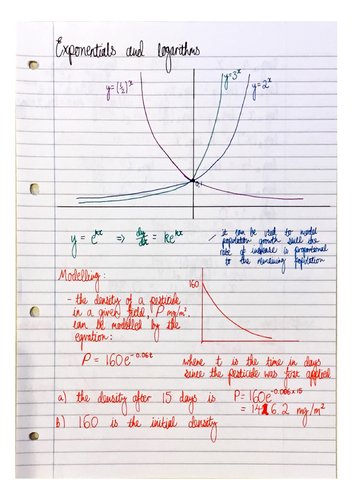 Exponentials and logarithms
y=(½)ˣ
y=3ˣ
y=2ˣ
y = eᵏˣ ⇒ dy/dx = keᵏˣ
it can be used to model
population growth
rate of increase is proportional
to the remaining population
Modelling:
- the density of a pesticide
in a given field, P mg/m²,
can be modelled by the
equation:
160
P = 160e^-0.06t
where t is the time in days
since the pesticide was first applied
a) the density after 15 days is P = 160e^-0.006×15
= 146.2 mg/m²
b) 160 is the initial density